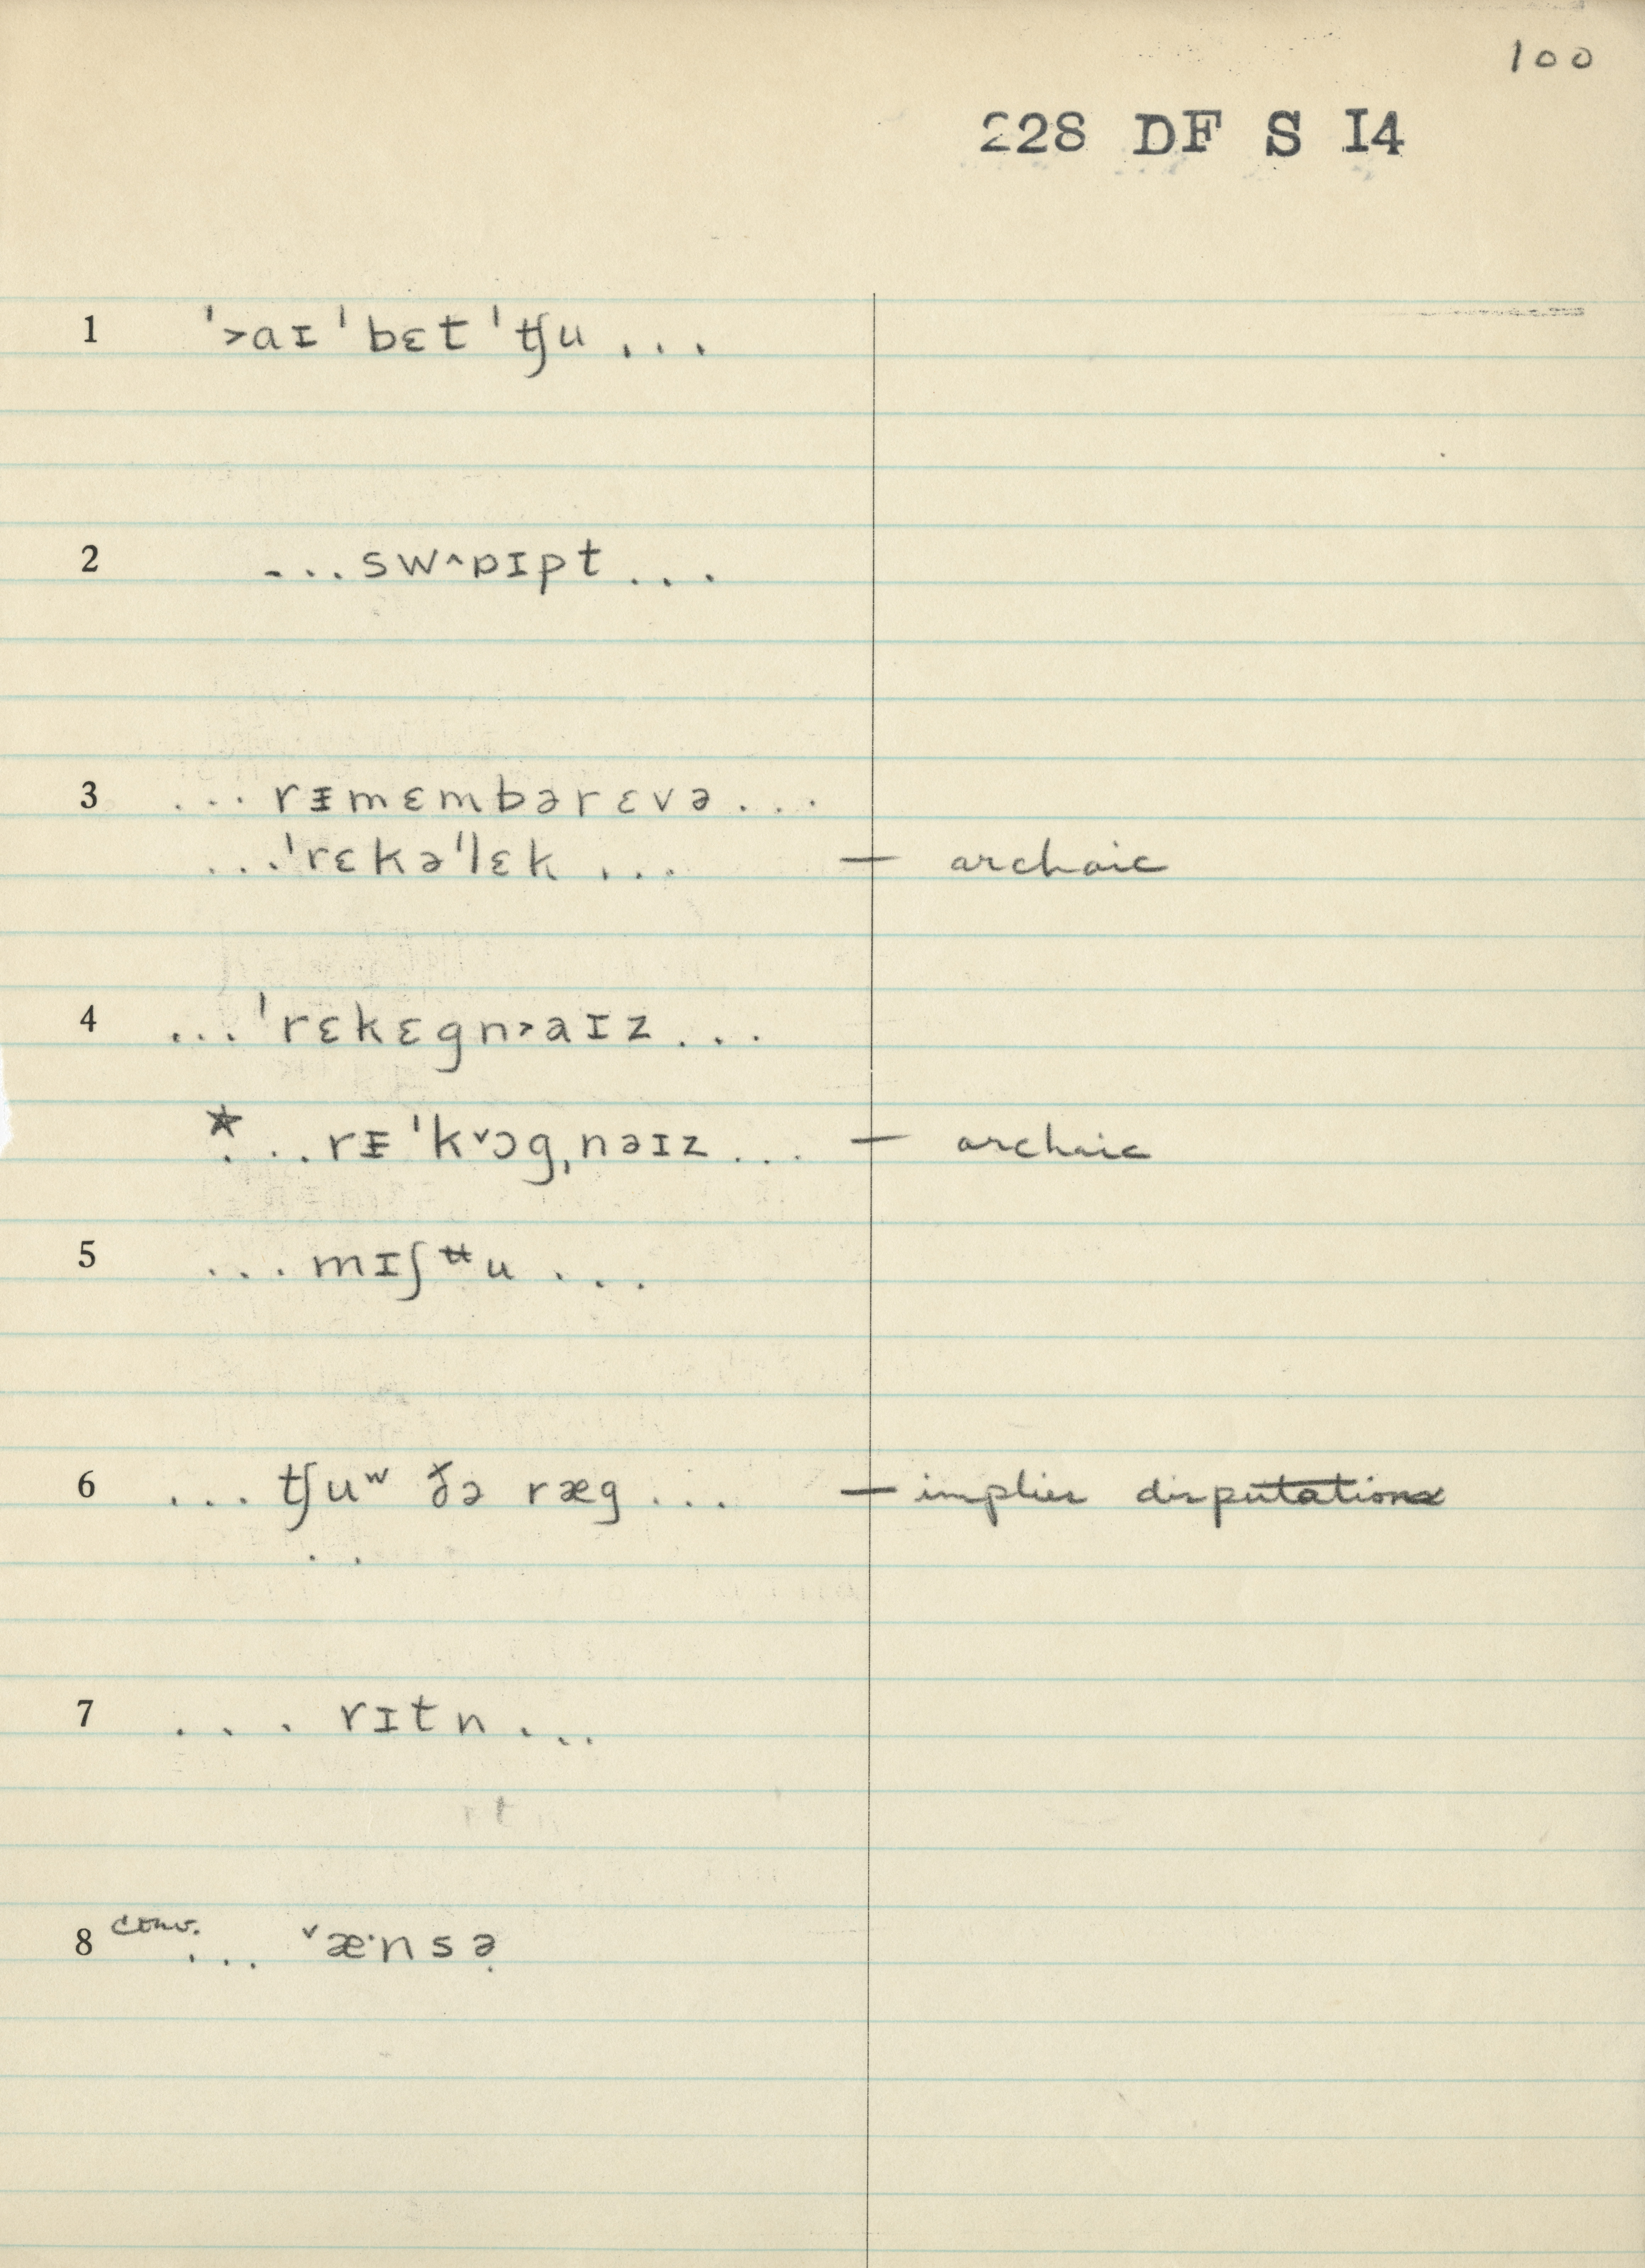 100
228 DF S I4
1 ˈ˃aɪ ˈbɛt ˈʧu ...
2 ...sw˄ɒɪpt...
3 ...rᵻmɛmbərɛvə...
...ˈrɛkəˈlɛk ... — archaic
4 ...ˈrɛkɛgn˃aɪz...
*...rᵻˈk˅ɔgˌnəɪz... — archaic
5 ...mɪʃᵗᵗu...
6 ...ʧuʷ ðə ræg... — implies disputation
7 ...rɪtn...
8 conv. ... ˅æˑnsə̣